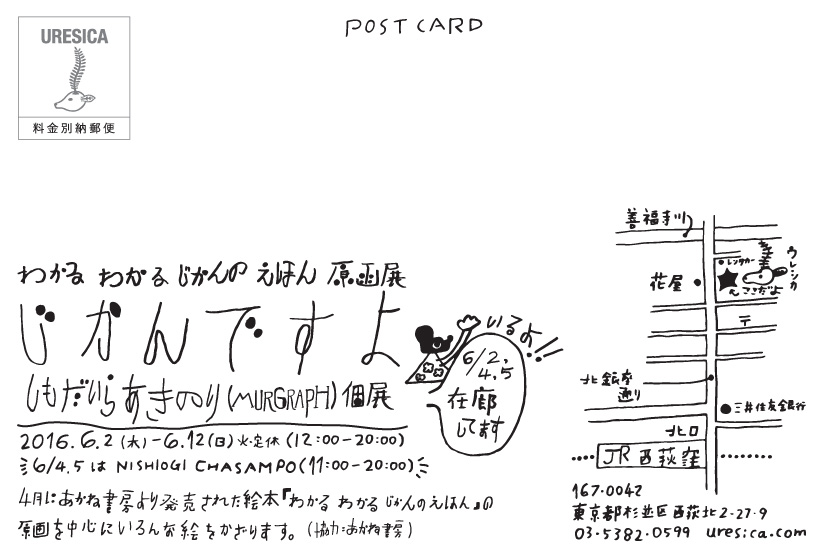 POST CARD
URESICA
料金別納郵便
わかる わかる じかんの えほん 原画展
じかんですよ
しもだいらあきのり (MURGRAPH) 個展
2016.6.2 (木) – 6.12 (日) 火・定休 (12:00-20:00)
6/4.5 は NISHIOGI CHASAMPO (11:00-20:00)
4月にあかね書房より発売された絵本『わかる わかる じかんのえほん』の
原画を中心にいろんな絵をかざります。(協力:あかね書房)
いるよ!!
6/2,
4,5
在廊
してます
善福寺川
レンタカー
ウレシカ
ここだよ
花屋
〒
北銀座
通り
三井住友銀行
北口
JR 西荻窪
167-0042
東京都杉並区西荻北2-27-9
03.5382.0599 uresica.com